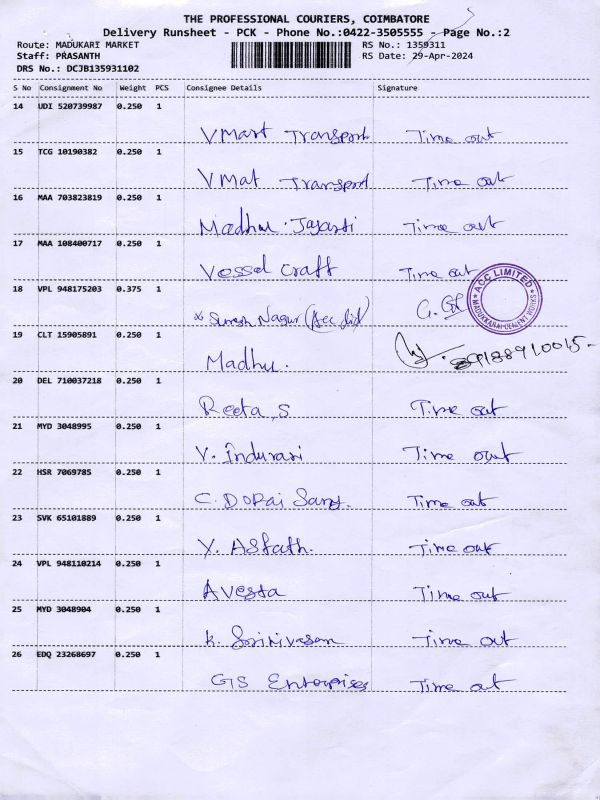 THE PROFESSIONAL COURIERS, COIMBATORE
Delivery Runsheet - PCK - Phone No.:0422-3505555 - Page No.:2
Route: MADUKARI MARKET RS No.: 1359311
Staff: PRASANTH RS Date: 29-Apr-2024
DRS No.: DCJB135931102
S No Consignment No Weight PCS Consignee Details Signature
14 UDI 520739987 0.250 1
V Mart Transport Time out
15 TCG 10190382 0.250 1
V Mat Transport Time out
16 MAA 703823819 0.250 1
Madhu Time out
17 MAA 108400717 0.250 1
Vessel Craft Time out
ACC LIMITED
MADUKKARAI CEMENT WORKS
18 VPL 948175203 0.375 1
Suresh Nagur (Acc ltd)
19 CLT 15905891 0.250 1
Madhu.
20 DEL 710037218 0.250 1
Reeta, S Time out
21 MYD 3048995 0.250 1
V. Indurani Time out
22 HSR 7069785 0.250 1
C. DoRai Time out
23 SVK 65101889 0.250 1
Y. Asfath. Time out
24 VPL 948110214 0.250 1
Avesta Time out
25 MYD 3048904 0.250 1
K. Srinivasan Time out
26 EDQ 23268697 0.250 1
GS Enterprises Time out